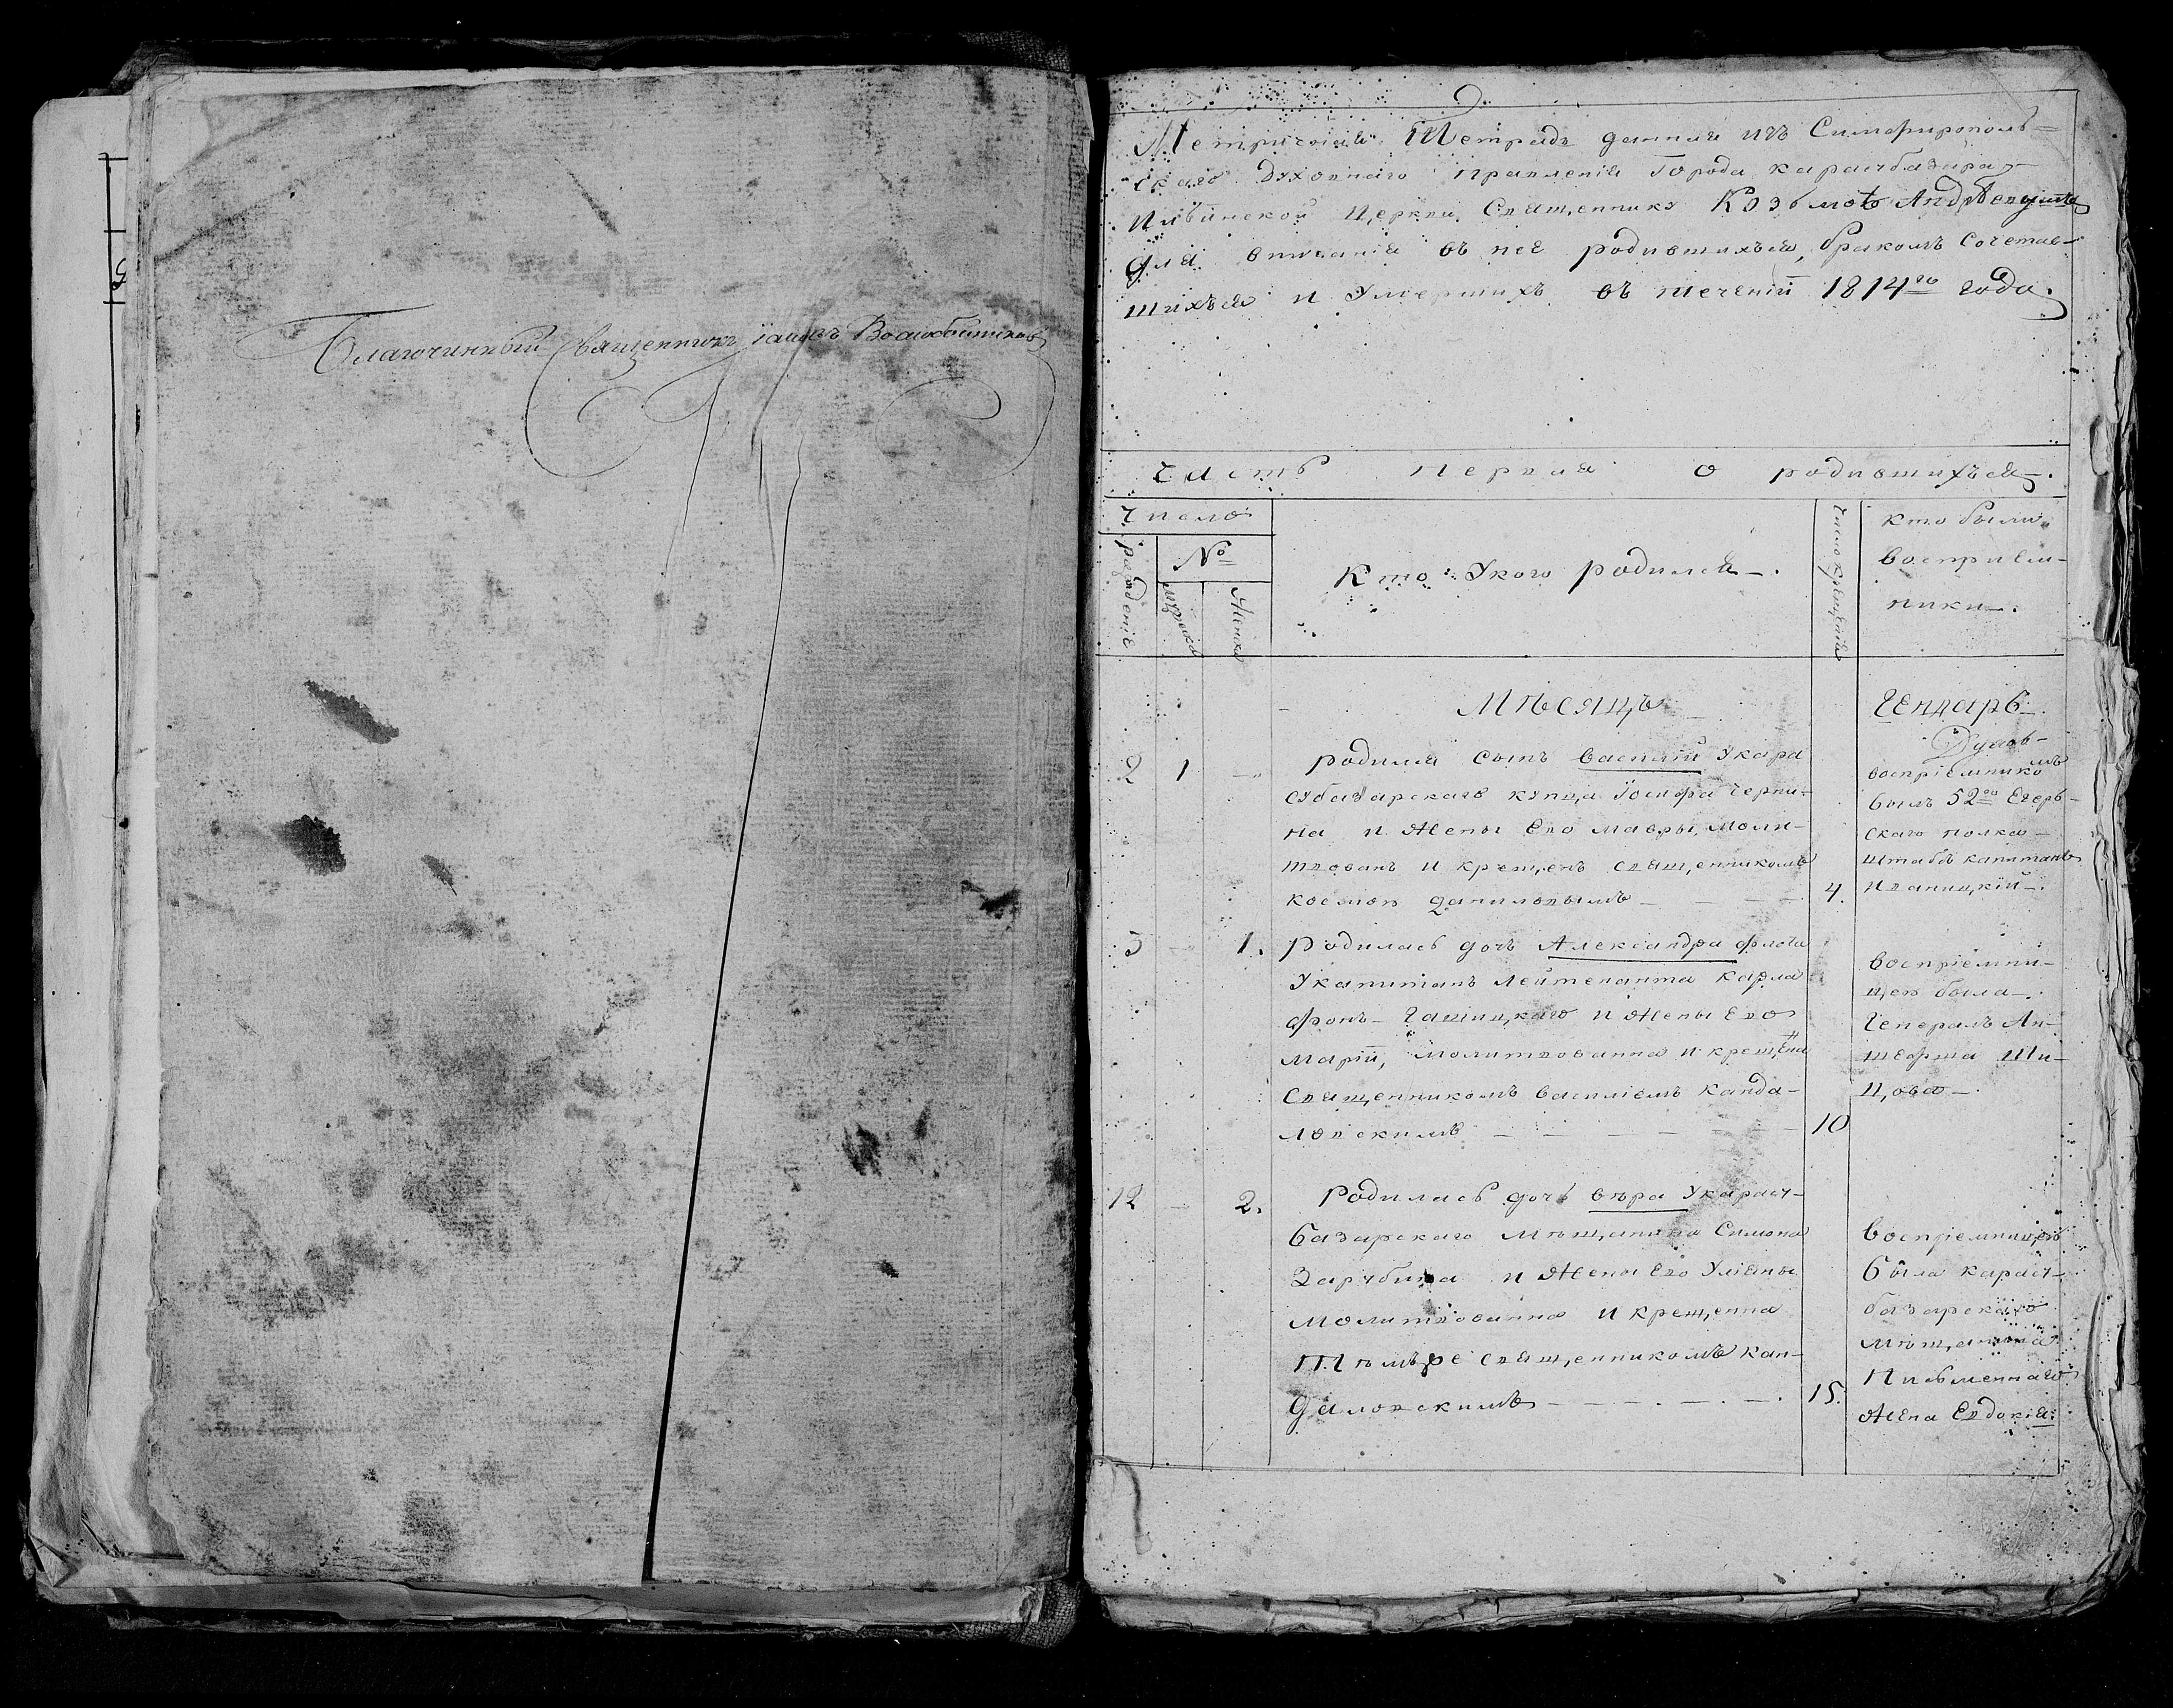 Благочинный Священникъ Іаковъ
Метрическая Тетрадь данная изъ Симферополь=
скаго Духовнаго Правленія Города карасубазара
Церкви Священнику Козьмѣ
для вписанія въ нее родившихъся, бракомъ Сочетав-
шихъся и Умершихъ въ теченіи 1814го года.
часть первая о родившихъся.
число
рожденіе
№
мужеска
Женска
Кто Укого родился.
число крещенія
кто были
восприем-
ники.
Мѣсяцъ
Генцарь
2 1 родился сынъ василій Укара
субазарскаго купца Іосифа черни-
на и Жены Его мавры, моли-
твованъ и крещенъ священникомъ
космою даниловымъ 4.
воспріемнико
мъ
былъ 52го Егерь-
скаго полка
штабсъ капитанъ
3 1. Родилась дочь Александра флота
Укапитанъ Лейтенанта карла
фонъ- и Жены Его
маріи, молитвованна и крещена
священникомъ василіемъ канда-
ловскимъ 10
воспріемни-
цею была
Генералъ Ан-
шефша Ши-
цова
12 2. Родилась дочь вѣра Укарасу-
базарскаго мѣщанина Симона
Зарубина и Жены Его Уліяны
молитвованна и крещенна
священникомъ кан-
даловскимъ 15.
воспріемницею
была карасу-
базарскаго
мѣщанина
Письменнаго
Жена Евдокія.